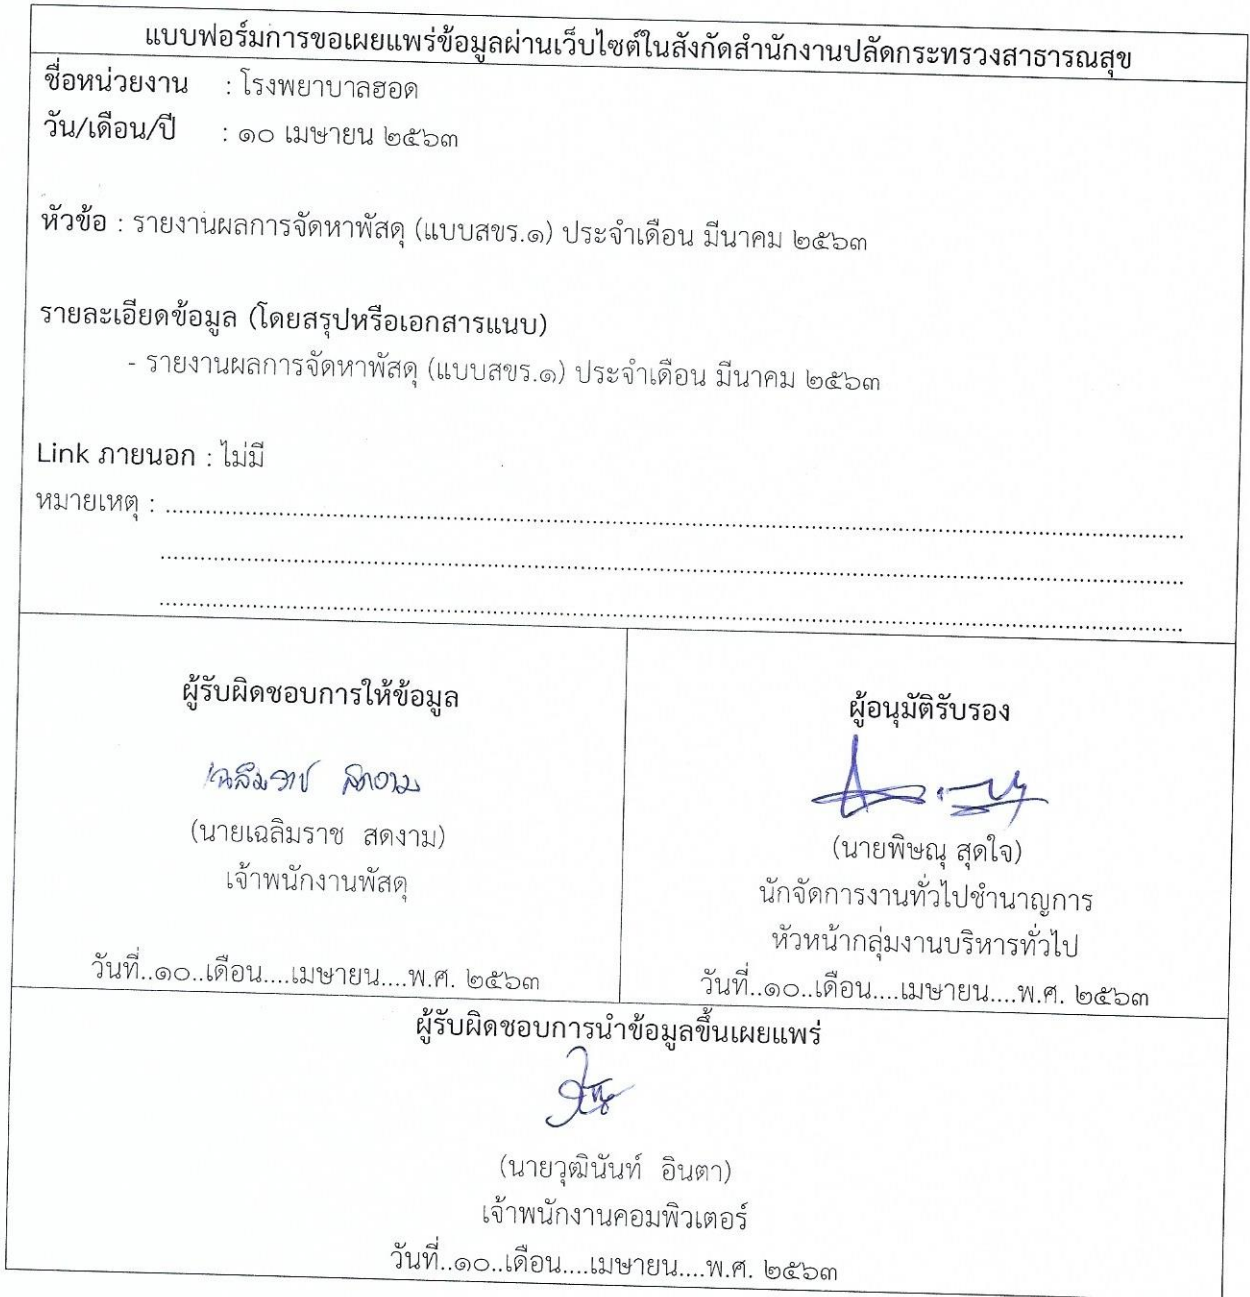 แบบฟอร์มการขอเผยแพร่ข้อมูลผ่านเว็บไซต์ในสังกัดสำนักงานปลัดกระทรวงสาธารณสุข
ชื่อหน่วยงาน : โรงพยาบาลฮอด
วัน/เดือน/ปี : ๑๐ เมษายน ๒๕๖๓
หัวข้อ : รายงานผลการจัดหาพัสดุ (แบบสขร.๑) ประจำเดือน มีนาคม ๒๕๖๓
รายละเอียดข้อมูล (โดยสรุปหรือเอกสารแนบ)
- รายงานผลการจัดหาพัสดุ (แบบสขร.๑) ประจำเดือน มีนาคม ๒๕๖๓
Link ภายนอก : ไม่มี
หมายเหตุ : ........................................................................
........................................................................
........................................................................
ผู้รับผิดชอบการให้ข้อมูล
เฉลิมราช สดงาม
(นายเฉลิมราช สดงาม)
เจ้าพนักงานพัสดุ
วันที่..๑๐..เดือน....เมษายน....พ.ศ. ๒๕๖๓
ผู้อนุมัติรับรอง
(นายพิษณุ สุดใจ)
นักจัดการงานทั่วไปชำนาญการ
หัวหน้ากลุ่มงานบริหารทั่วไป
วันที่..๑๐..เดือน....เมษายน....พ.ศ. ๒๕๖๓
ผู้รับผิดชอบการนำข้อมูลขึ้นเผยแพร่
(นายวุฒินันท์ อินตา)
เจ้าพนักงานคอมพิวเตอร์
วันที่..๑๐..เดือน....เมษายน....พ.ศ. ๒๕๖๓